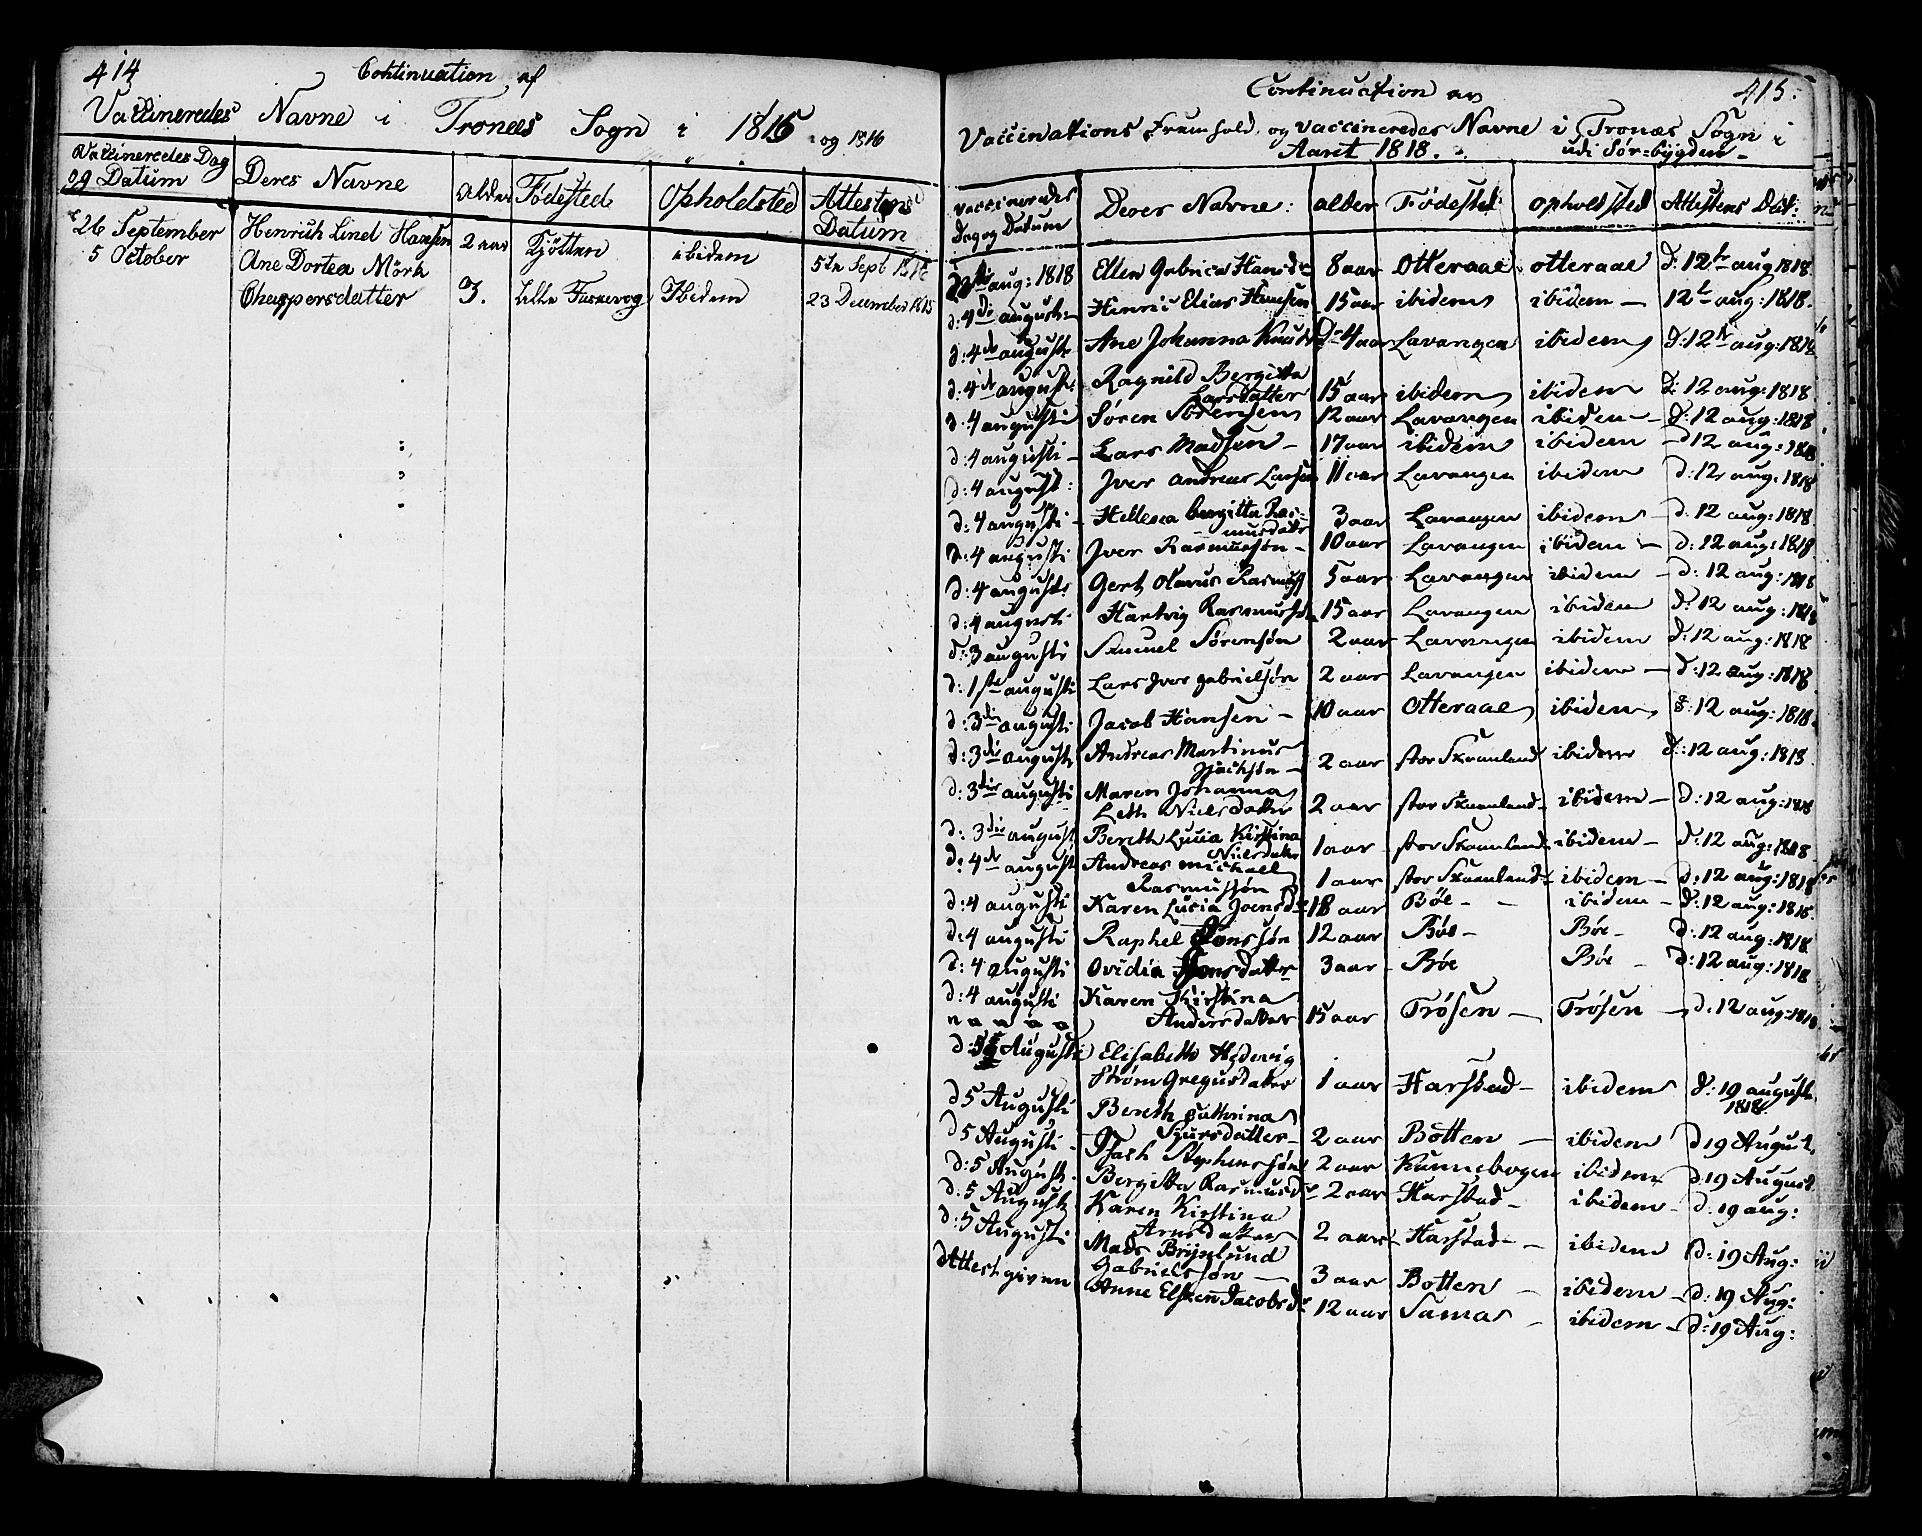 414
Continuation af
Vaccineredes Navne i Tronæs Sogn i 1815 og 1816
Vaccineredes Dag og Datum | Deres Navne | Alder | Födested | Opholdsted | Attestens Datum
26 September | Henrich Lind Hansen | 2 aar | Tjötten | ibidem | 5te Sept 1816
5 October | Ane Dortea Mörk
Chaspersdatter | 3. | Lille | Ibidem | 23 December 1815
415:
Continuation av
Vaccinations Fremhold og Vaccineredes Navne i Tronæs Sogn i
Aaret 1818. udi Sør-bygden
vaccineredes Dag og Datum | Deres Navne: | alder | Fødested | opholdsted | Attestens Dat:
aug: 1818 | Ellen Gabriela Hansdr | 8 aar | Otteraae | otteraae | d: 12te aug 1818
d: 4de augusti | Henric Elias Hansen | 15 aar | ibidem | ibidem | 12t aug: 1818.
d: 4de augusti | Ane Johanna Knuds Dr | 4 aar | Lavangen | ibidem | d: 12te aug: 1818
d: 4de augusti | Ragnild Bergitta
Larsdatter | 15 aar | ibidem | ibidem | d: 12 aug: 1818
d: 4 augusti | Søren Sörensen | 12 aar | Lavangen | ibidem | d: 12 aug: 1818
d: 4 augusti | Lars Madsen | 17 aar | ibidem | ibidem | d 12 aug: 1818
d: 4 augusti | Iver andreas Larsen | 11 aar | Lavangen | ibidem | d: 12 aug: 1818
d: 4 augusti | Hellesea bergitta Ras-
musdatr | 3 aar | Lavangen | ibidem | d. 12 aug: 1818
d: 4 augusti | Iver Rasmussøn | 10 aar | Lavangen | ibidem | d: 12 aug: 1818
d: 4 augusti | Gert Olavus Rasmuss | 5 aar | Lavangen | ibidem | d: 12 aug: 1818
d: 4 augusti | Hartvig Rasmussøn | 15 aar | Lavangen | ibidem | d: 12 aug: 1818
d: 3 augusti | Samuel Sørensøn | 2 aar | Lavangen | ibidem | d: 12 aug: 1818
d: 1ste augusti | Lars Iver gabrielsøn | 2 aar | Lavangen | ibidem | d: 12 aug: 1818
d: 3die augusti | Jacob Hansen | 10 aar | Otteraae | ibidem | d: 12 aug: 1818
d: 3die augusti | Andreas Martinus
Isachsøn | 2 aar | stor Skaanland | ibidem | d: 12 aug: 1818
d: 3die augusti | Maren Johanna
Leth Nielsdatter | 2 aar | stor Skaanland | ibidem | d: 12 aug: 1818
d: 3die augusti | Bereth Lucia Kirstina
Nielsdatr | 1 aar | stor Skaanland | ibidem | d: 12 aug: 1818
d: 4de augusti | Andreas michael
Rasmussøn | 1 aar | stor Skaanland | ibidem | d: 12 aug: 1818
d: 4 augusti | Karen Lucia Joensdr | 18 aar | Bøe | ibidem | d: 12 aug: 1818.
d: 4 augusti | Raphel Jonssøn | 12 aar | Bøe | Bøe | d: 12 aug: 1818
d: 4 augusti | Ovidia Jonsdatter | 3 aar | Bøe | Bøe | d: 12 aug: 1818
d: 4 augusti | Karen Kirstina
Andersdatter | 15 aar | Trøsen | Trøsen | d: 12 aug: 1818
d: 5 Augusti | Elisabeth Hedevig
Strøm Gregusdater | 1 aar | Harstad | ibidem | d: 19 augusti 1818
d 5 Augusti | Bereth Cathrina
Sjursdatter | 2 aar | Botten | ibidem | d 19 August
d 5 Augusti | Isach Stephenssøn | 2 aar | Kannebogen | ibidem | d: 19 August
d: 5 Augusti | Bergitta Rasmusdr | 2 aar | Harstad | ibidem | d: 19 aug:
d. 5 Augusti | Karen Kirstina
Arnsdatter | 2 aar | Harstad | ibidem | d: 19 Aug:
d: 5 Augusti | Mads Brynlund
Gabrielssøn | 3 aar | Botten | ibidem | d: 19 Aug:
Attest given | Anne Elsken Jacobsdr | 12 aar | Samas | ibidem | d: 19 Aug: